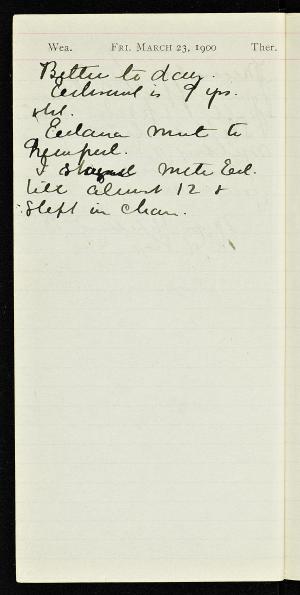 Wea. FRI. MARCH 23, 1900 Ther.
Better to day.
is 9 yrs.
old.
Edana went to
I stayed with Ed.
till almost 12 &
slept in chair.